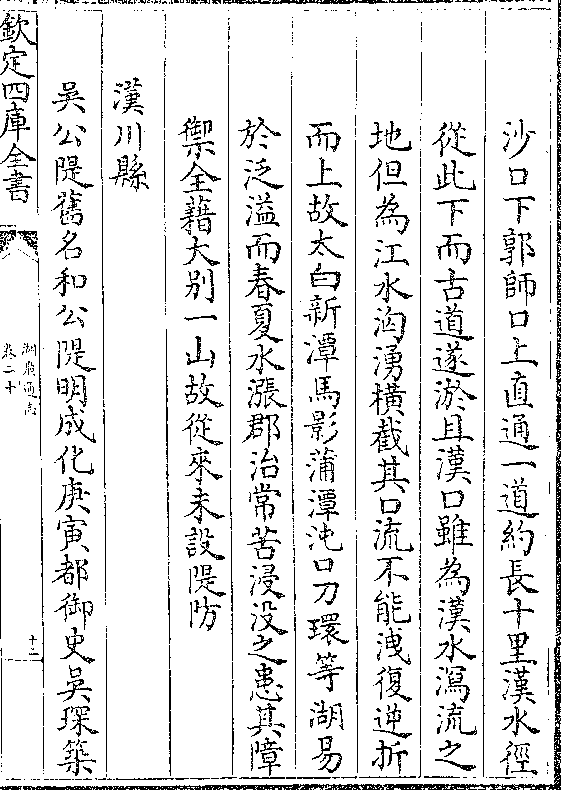 沙口下郭師口上直通一道約長十里漢水徑
從此下而古道遂淤且漢口雖為漢水瀉流之
地但為江水洶湧橫截其口流不能洩復逆折
而上故太白新潭馬影蒲潭沌口刀環等湖易
於泛溢而春夏水漲郡治常苦浸没之患其障
禦全藉大别一山故從來未設隄防
漢川縣
吳公隄舊名和公隄明成化庚寅都御史吳琛築
欽定四庫全書
湖廣通志
卷二十
十二